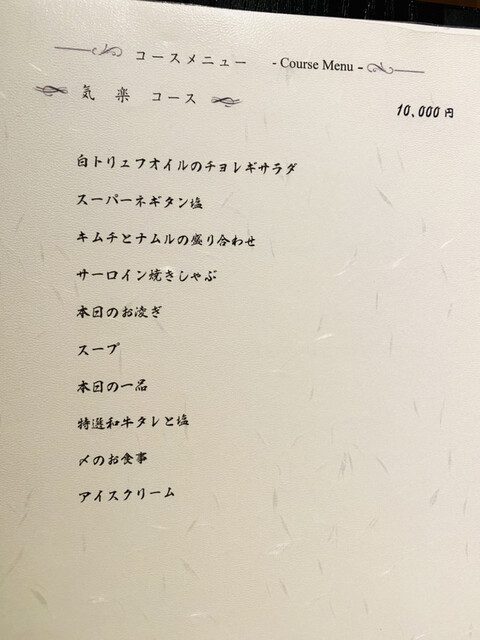 コースメニュー - Course Menu -
気 楽 コース
10,000円
白トリュフオイルのチョレギサラダ
スーパーネギタン塩
キムチとナムルの盛り合わせ
サーロイン焼きしゃぶ
本日のお凌ぎ
スープ
本日の一品
特選和牛タレと塩
〆のお食事
アイスクリーム